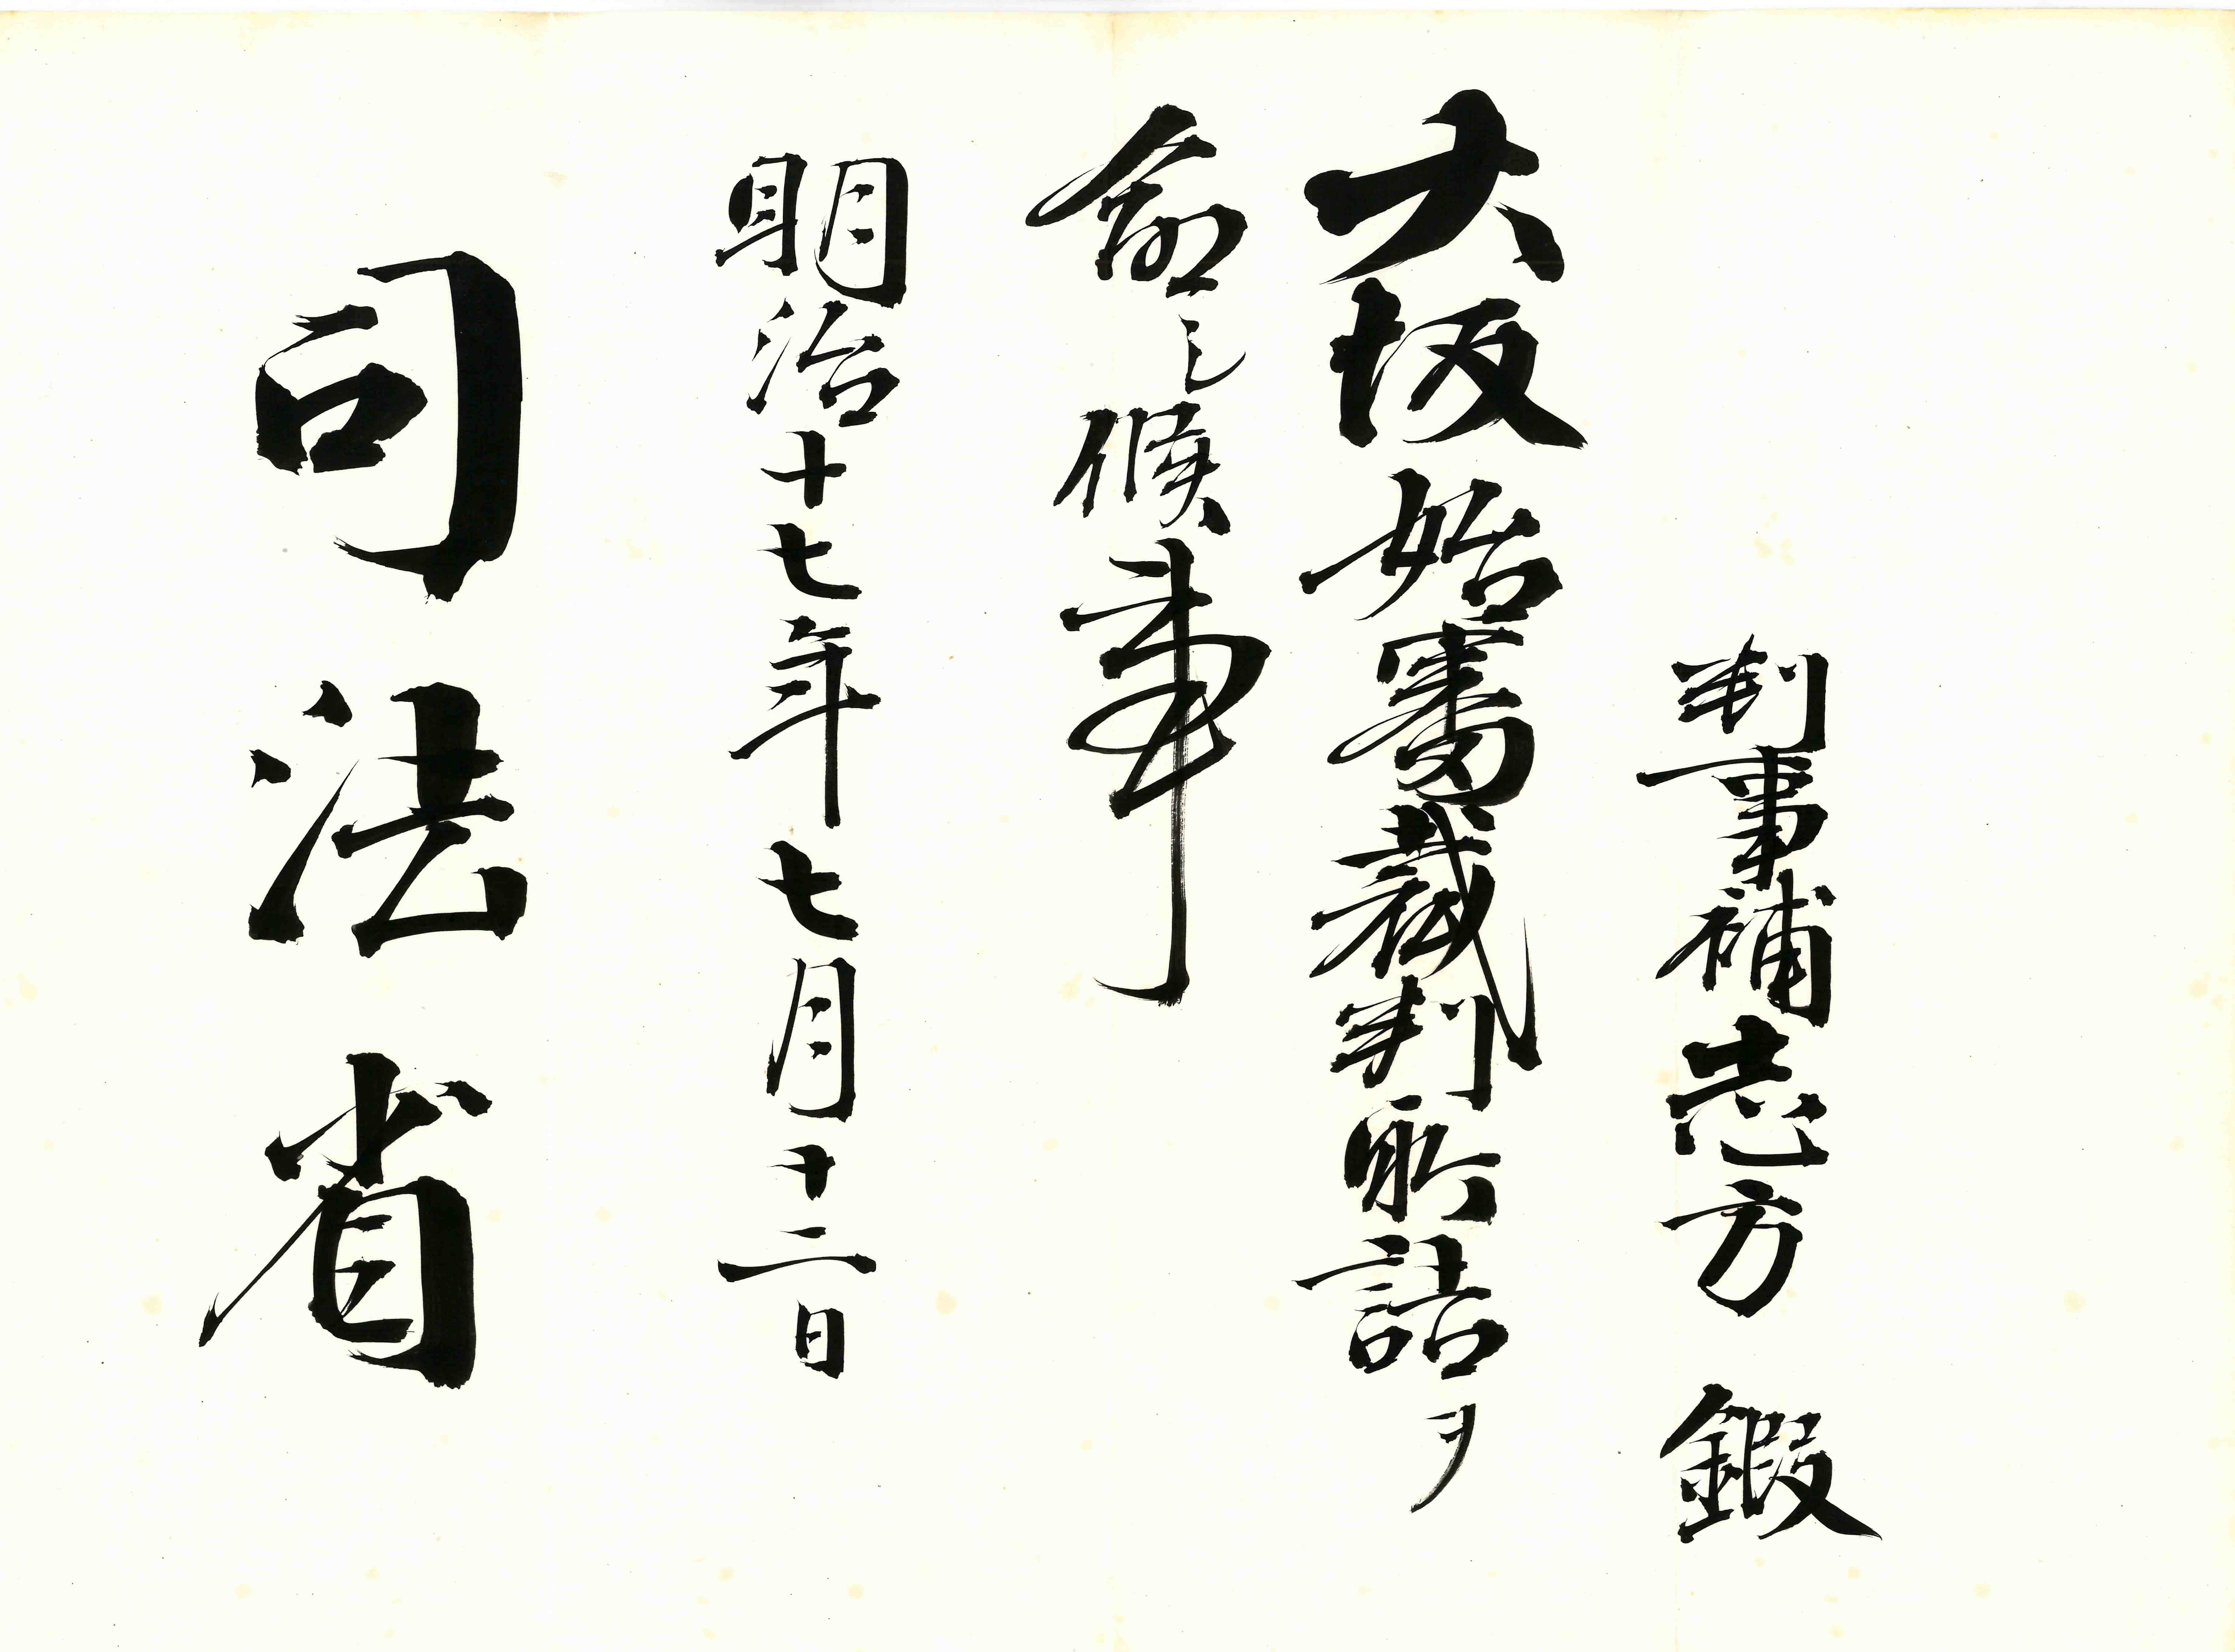 判事補志方 鍛
大坂始審裁判所詰ヲ
命シ候事
明治十七年七月十二日
司法省